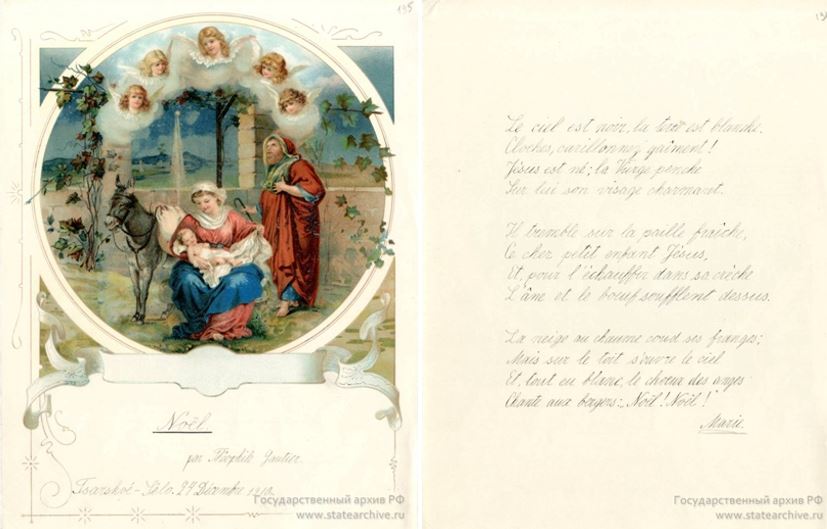 195
Noël
par Théophile Gautier
Tsarskoé-Sélo. 24 Décembre
Государственный архив РФ
www.statearchive.ru
Le ciel est noir, la terre est blanche.
Cloches, carillonnez gaîment!
Jésus est né; la Vierge penche
Sur lui son visage charmant.
Il tremble sur la paille fraîche,
Ce cher petit enfant Jésus,
Et, pour l'échauffer dans sa crèche
L'âne et le bœuf soufflent dessus.
La neige au chaume coud ses franges;
Mais sur le toit s'ouvre le ciel
Et, tout en blanc, le chœur des anges
Chante aux bergers: „Noël! Noël!"
Marie.
Государственный архив РФ
www.statearchive.ru